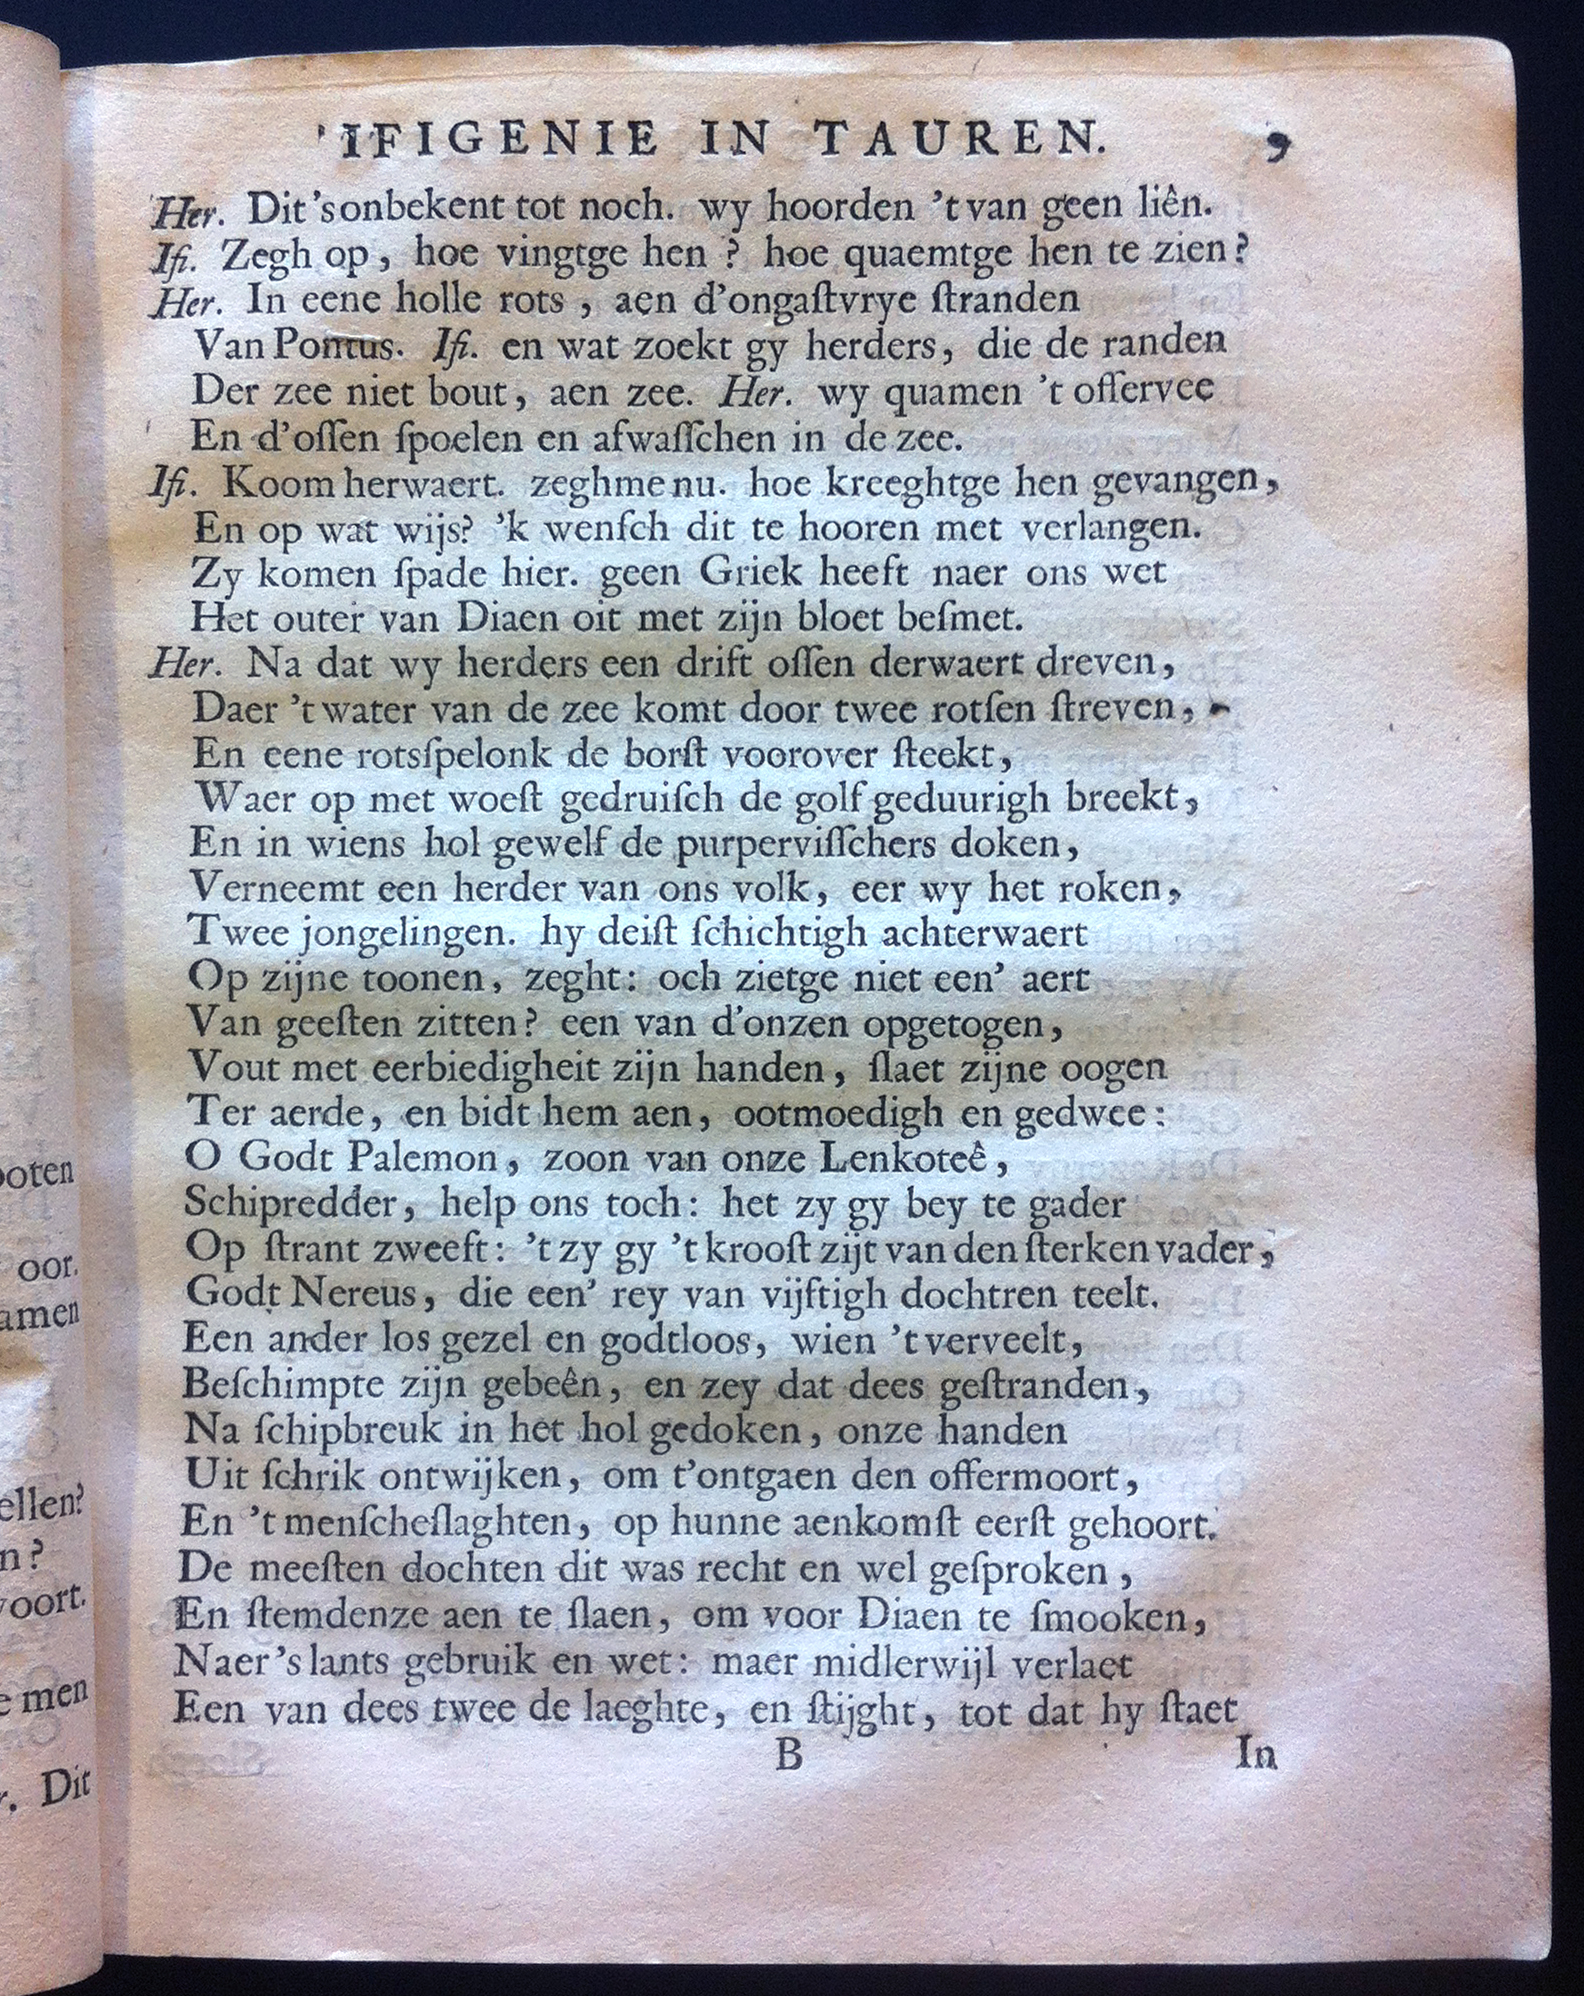 IFIGENIE IN TAUREN. 9
Her. Dit 'sonbekent tot noch. wy hoorden 't van geen liên.
Ifi. Zegh op, hoe vingtge hen ? hoe quaemtge hen te zien?
Her. In eene holle rots , aen d'ongaſtvrye ſtranden
Van Pontus. Ifi. en wat zoekt gy herders, die de randen
Der zee niet bout, aen zee. Her. wy quamen 't offervee
En d'oſſen ſpoelen en afwaſſchen in de zee.
Ifi. Koom herwaert. zeghme nu. hoe kreeghtge hen gevangen,
En op wat wijs? 'k wenſch dit te hooren met verlangen.
Zy komen ſpade hier. geen Griek heeft naer ons wet
Het outer van Diaen oit met zijn bloet beſmet.
Her. Na dat wy herders een drift oſſen derwaert dreven,
Daer 't water van de zee komt door twee rotſen ſtreven,
En eene rotsſpelonk de borſt voorover ſteekt,
Waer op met woeſt gedruiſch de golf geduurigh breekt,
En in wiens hol gewelf de purperviſſchers doken,
Verneemt een herder van ons volk, eer wy het roken,
Twee jongelingen. hy deiſt ſchichtigh achterwaert
Op zijne toonen, zeght: och zietge niet een' aert
Van geeſten zitten? een van d'onzen opgetogen,
Vout met eerbiedigheit zijn handen, ſlaet zijne oogen
Ter aerde, en bidt hem aen, ootmoedigh en gedwee:
O Godt Palemon, zoon van onze Lenkoteê,
Schipredder, help ons toch: het zy gy bey te gader
Op ſtrant zweeft: 't zy gy 't krooſt zijt van den ſterken vader,
Godt Nereus, die een' rey van vijftigh dochtren teelt.
Een ander los gezel en godtloos, wien 't verveelt,
Beſchimpte zijn gebeên, en zey dat dees geſtranden,
Na ſchipbreuk in het hol gedoken, onze handen
Uit ſchrik ontwijken, om t'ontgaen den offermoort,
En 't menſcheſlaghten, op hunne aenkomſt eerſt gehoort.
De meeſten dochten dit was recht en wel geſproken,
En ſtemdenze aen te ſlaen, om voor Diaen te ſmooken,
Naer 's lants gebruik en wet: maer midlerwijl verlaet
Een van dees twee de laeghte, en ſtijght, tot dat hy ſtaet
B In
oten
oor.
amen
ellen?
n?
oort.
e men
r. Dit